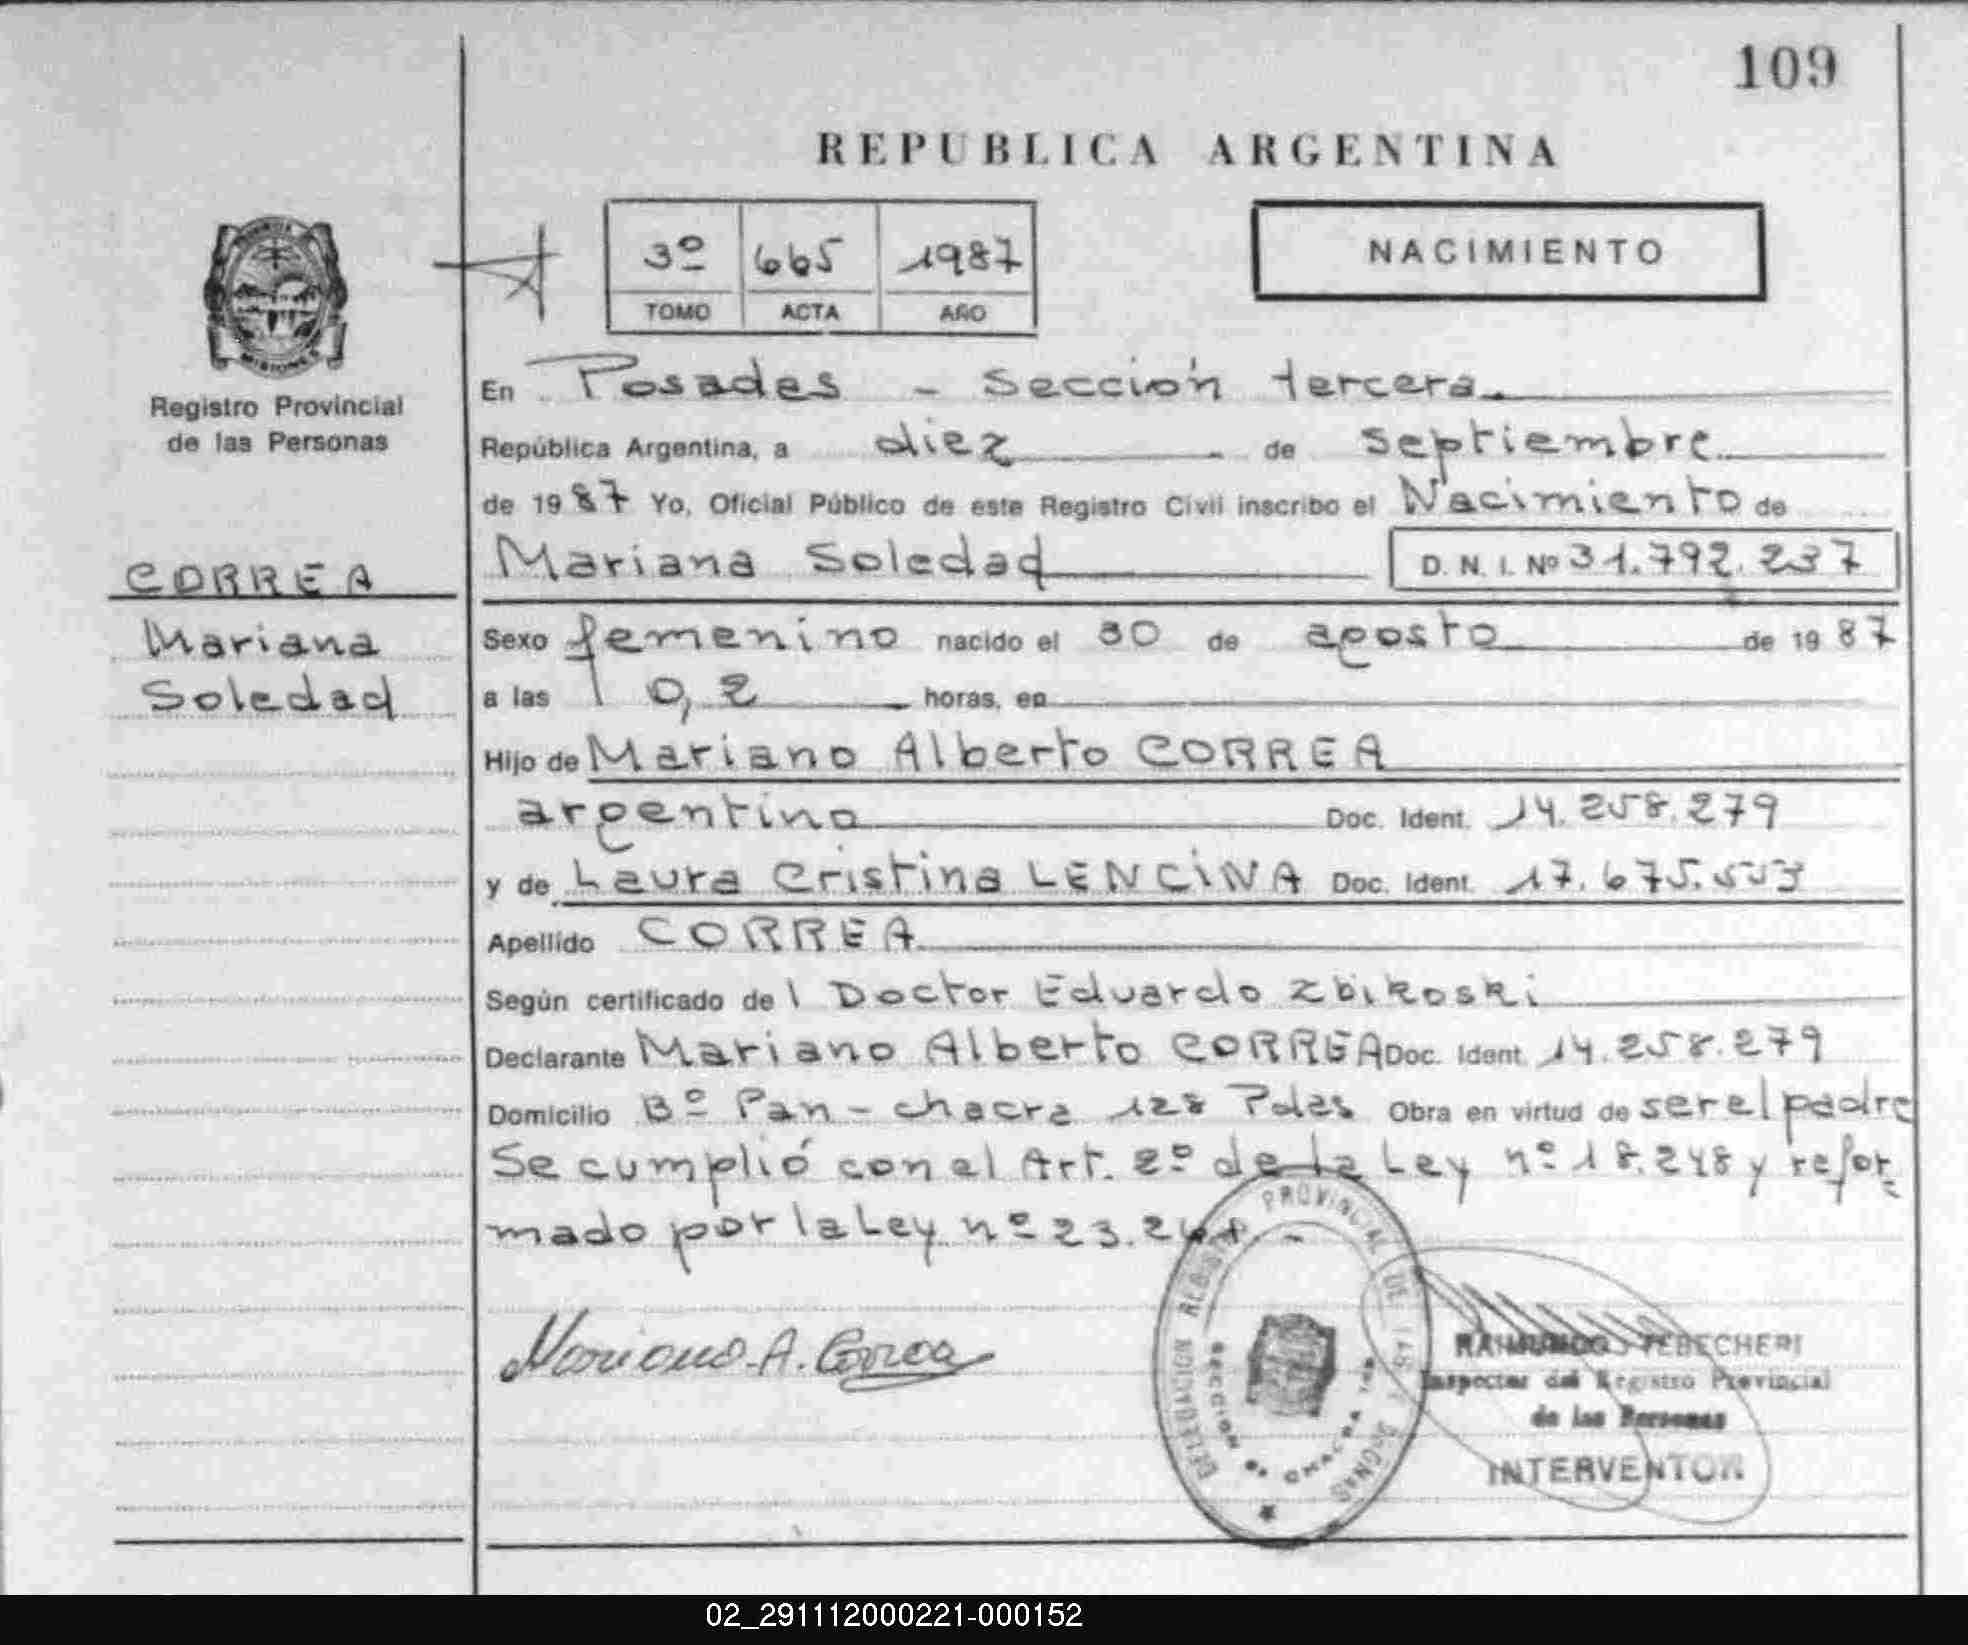 109
REPUBLICA ARGENTINA
3º 665 1987
TOMO ACTA AÑO
NACIMIENTO
MISIONES
Registro Provincial
de las Personas
CORREA
Mariana
Soledad
En Posadas - Sección tercera
República Argentina, a diez de septiembre
de 1987 Yo, Oficial Público de este Registro Civil inscribo el Nacimiento de
Mariana Soledad D. N. I. Nº 31.792.237
Sexo femenino nacido el 30 de agosto de 1987
a las 0,2 horas, en
Hijo de Mariano Alberto CORREA
argentino Doc. Ident. 14.258.279
y de Laura Cristina LENCINA Doc. Ident. 17.675.553
Apellido CORREA
Según certificado del Doctor Eduardo Zbikoski
Declarante Mariano Alberto CORREA Doc. Ident. 14.258.279
Domicilio Bº Pan - chacra 128 Pdas Obra en virtud de ser el padre
Se cumplió con el Art. 2º de la Ley nº 18.248 y refor
mado por la Ley nº 23.
Mariano A. Correa
DELEGACION REGISTRO PROVINCIAL DE LAS PERSONAS
SECCION CHACRA
RAIMUNDO TEBECHERI
Inspector del Registro Provincial
de las Personas
INTERVENTOR
02_291112000221-000152